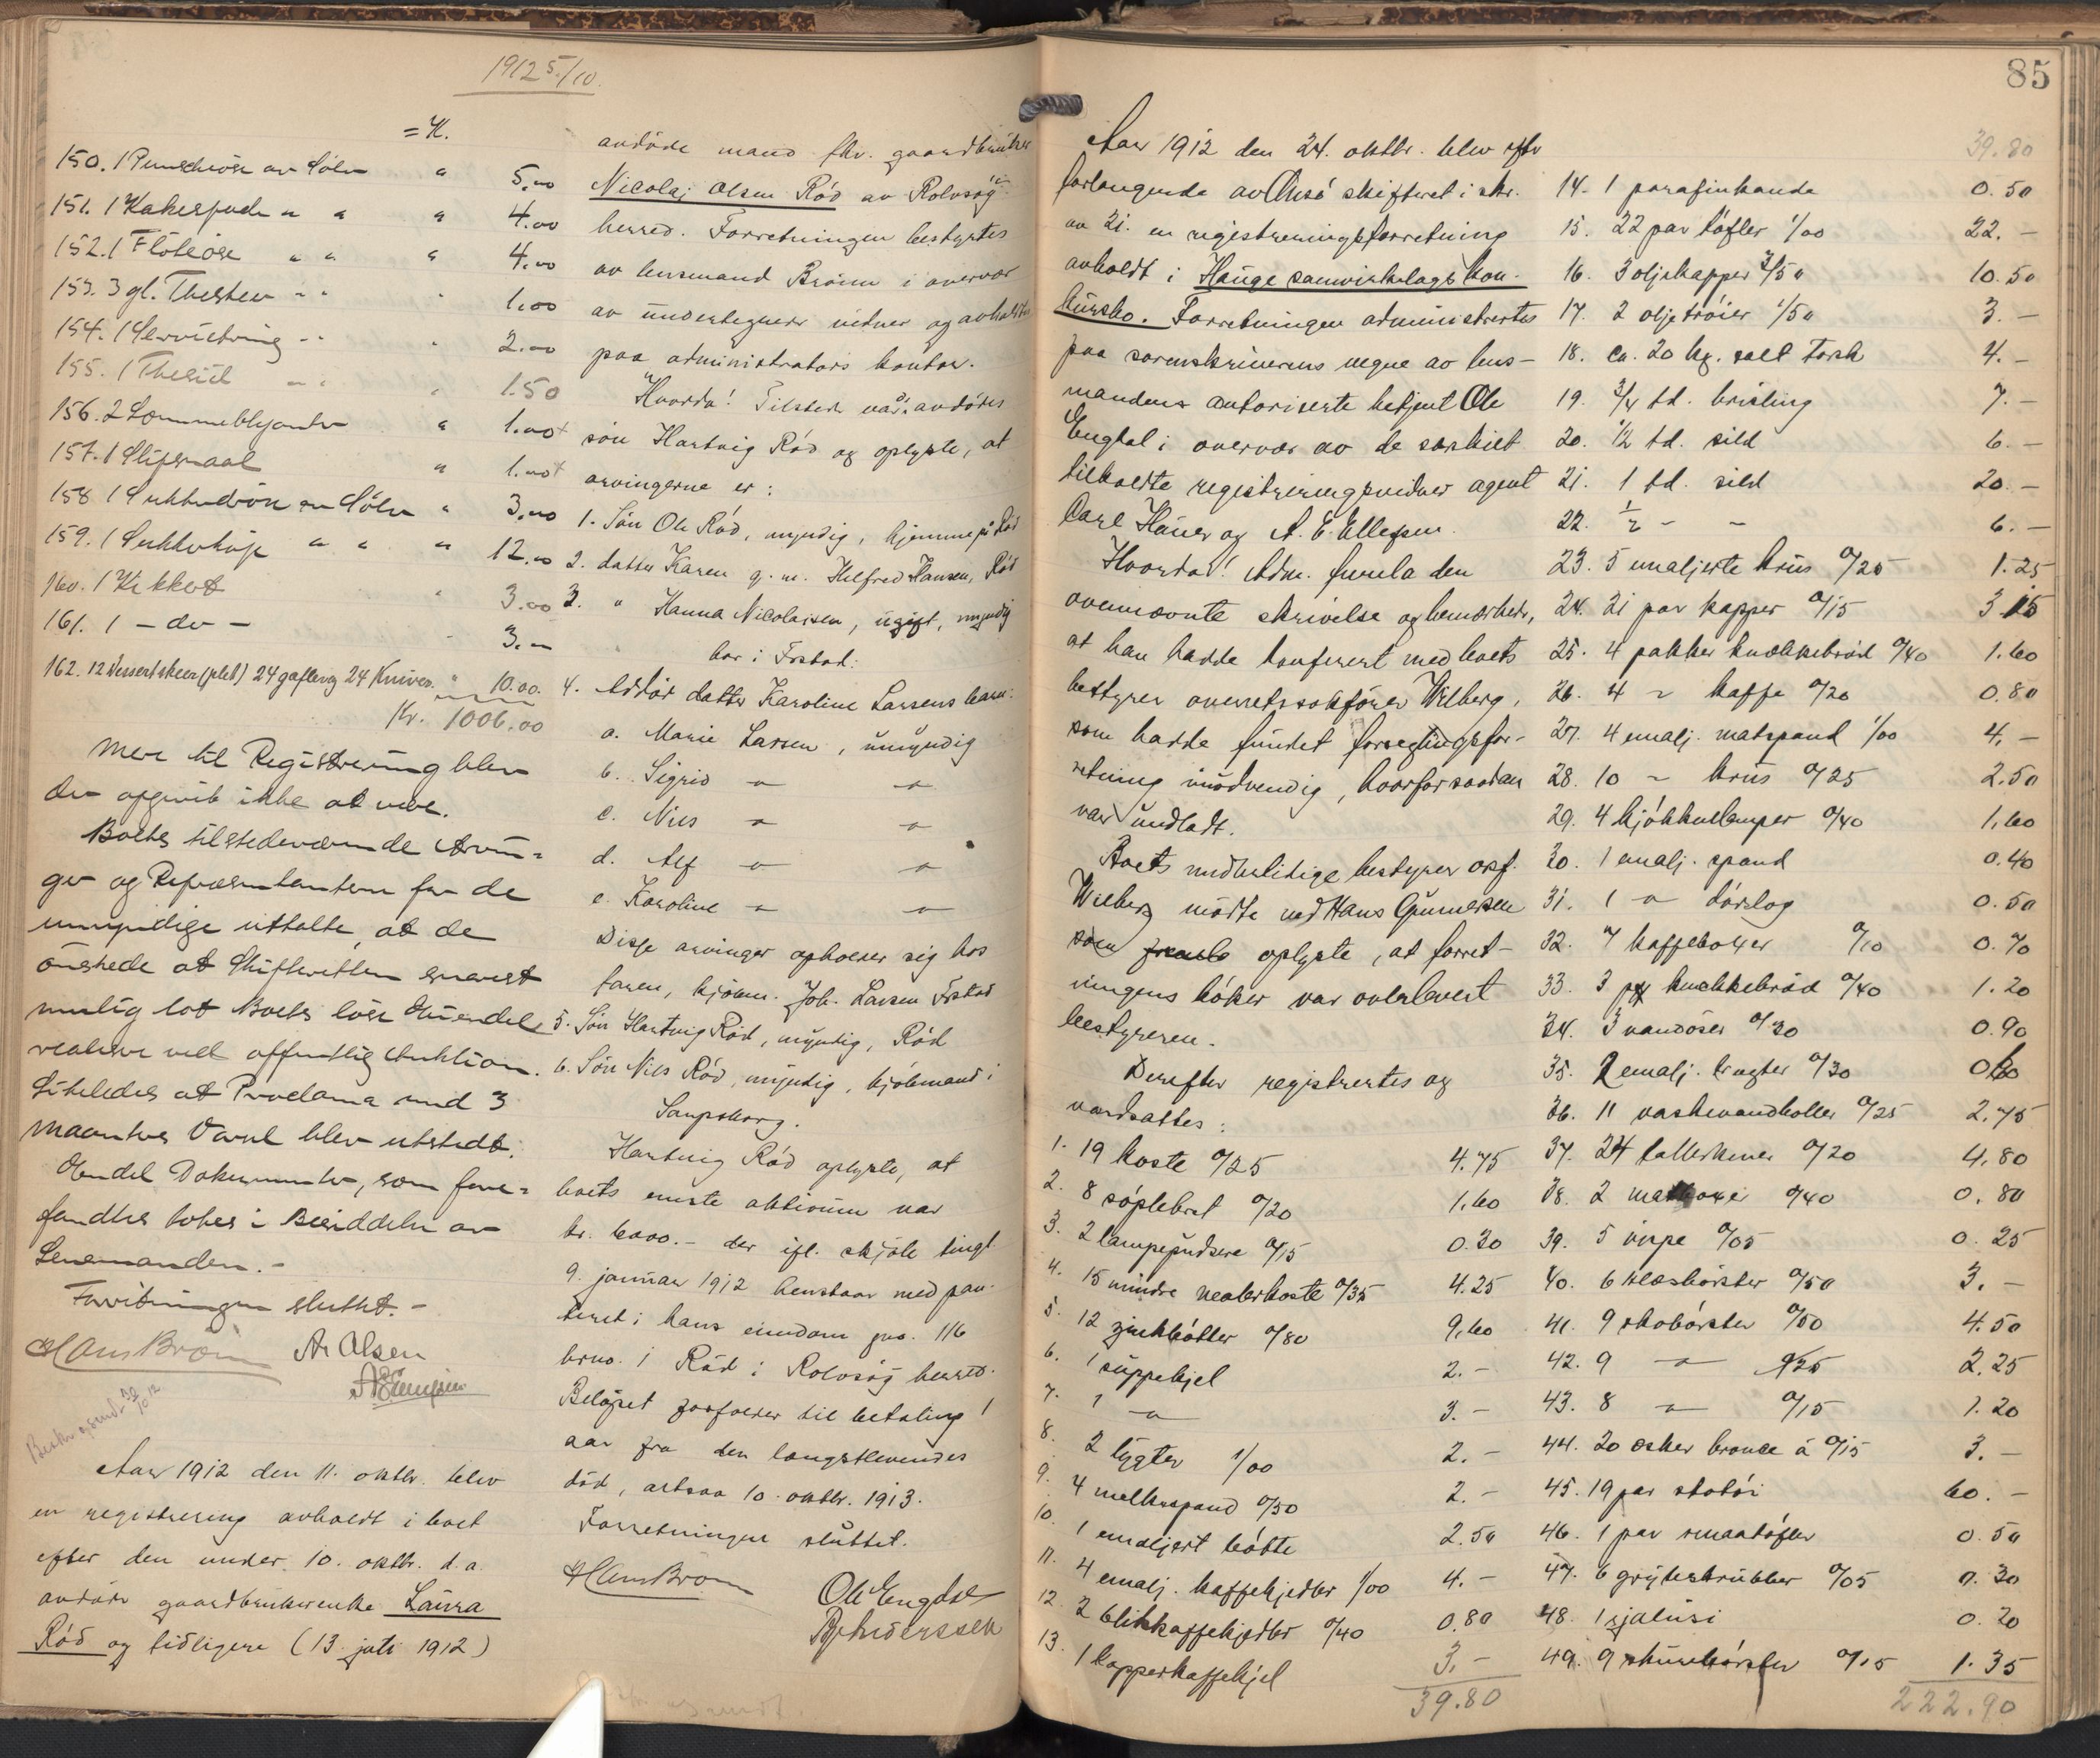 1912 5/10.
= K.
150. 1 Punscheöse av Sölv " 5.00
151. 1 Kakespade " " " 4.00
152. 1 Flöteöse " " " 4.00
153. 3 gl. Theskeer " " 1.00
154. 1 Servietring " " 2.00
155. 1 Thesil " " 1.50
156. 2 Lommeblyanter " 1.00
157. 1 Slipsnaal " 1.00
158. 1 Sukkerskrin av Sölv " 3.00
159. 1 Sukkerkop " " " 12.00
160. 1 Kikkert " 3.00
161. 1 - do - 3.00
162. 12 Dessertskeer (plet) 24 gafler og 24 Kniver. " 10.00.
Kr. 1006.00
Mere til Registrering blev
der opgivet ikke at være.
Boets tilstedeværende Arvin=
ger og Repræsentanterne for de
umyndige uttalte, at de
önskede at Skifteretten snarest
mulig lot Boets löse Eiendele
realisere ved offentlig Auktion.
Likeledes at Proclama med 3
Maaneders Varsel blev utstedt.
Endel Dokumenter, som fore=
fandtes toges i Besiddelse av
Lensmanden. -
Forretningen sluttet. -
Hans Brönn Ar Olsen
Beskr. og sendt 30/10 12
Aar 1912 den 11. oktbr. blev
en registrering avholdt i boet
efter den under 10. oktbr. d.a.
avdöde gaardbrukerenke Laura
Röd og tidligere (13. juli 1912)
avdöde mand fhv. gaardbruker
Nicolaj Olsen Röd av Rolvsöy
herred. Forretningen bestyrtes
av lensmand Brönn i overvær
av undertegnede vidner og avholdtes
paa administrators kontor.
Hvorda! Tilstede var: avdödes
sön Hartvig Röd og oplyste, at
arvingerne er:
1. Sön Ole Röd, myndig, hjemme på Röd
2. datter Karen g. m. Hilfred Hansen, Röd
3. " Hanna Nicolaisen, ugift, myndig
bor i Frstad.
4. Avdöd datter Karoline Larsens barn:
a. Marie Larsen, umyndig
b. Sigrid " "
c. Nils " "
d. Alf " "
e. Karoline " "
Disse arvinger opholder sig hos
faren, kjöbm. Joh. Larsen Frstad
5. Sön Hartvig Röd, myndig, Röd
6. Sön Nils Röd, myndig, kjöbmand i
Sarpsborg.
Hartvig Röd oplyste, at
boets eneste aktivum var
kr. 6000.- der ifl. skjöte tingl.
9. januar 1912 henstaar med pan-
teret i hans eiendom gno. 116
brno. 1 Röd i Rolvsöy herred.
Belöpet forfalder til betaling 1
aar fra den længstlevendes
död, altsaa 10. oktbr. 1913.
Forretningen sluttet.
Hans Brönn
Ole Engdal
85
Aar 1912 den 24. oktbr. blev efter
forlangende av Onsö skifteret i skr.
av 21. en registreringsforretning
avholdt i Hauge samvirkelags kon-
kursbo. Forretningen administrertes
paa sorenskriverens vegne av lens-
mandens autoriserte betjent Ole
Engdal i overvær av de særskilt
tilkaldte registreringsvidner agent
Carl Hauer og A. E. Ellefsen.
Hvorda! Adm. fremla den
ovennævnte skrivelse og bemærkede,
at han hadde konferert med boets
bestyrer overretssakförer Wilberg,
som hadde fundet forseglingsfor-
retning unödvendig, hvorfor saadan
var undladt.
Boets midlertidige bestyrer osf.
Wilberg mödte ved Hans Gunnersen
som oplyste, at forret-
ningens böker var overlevert
bestyreren.
Derefter registrertes og
værdsattes:
1. 19 koste 0/25 4.75
2. 8 söplebret 0/20 1.60
3. 2 lampepudsere 0/15 0.30
4. 15 mindre malerkoste 0/35 4.25
5. 12 zinkbötter 0/80 9.60
6. 1 suppekjel 2.-
7. 1 " 3.-
8. 2 lygter 1/00 2.-
9. 4 melkespand 0/50 2.-
10. 1 emaljert bötte 2.50
11. 4 emalj. kaffekjedler 1/00 4.-
12. 2 blikkaffekjedler 0/40 0.80
13. 1 kopperkaffekjel 3.-
39.80
39.80
14. 1 parafinkande 0.50
15. 22 par töfler 1/00 22.-
16. 3 oljekapper 3/50 10.50
17. 2 oljetröier 1/50 3.-
18. ca. 20 kg. salt torsk 4.-
19. 3/4 td. brisling 7.-
20. 1/2 td. sild 6.-
21. 1 td. sild 20.-
22. 1/2 - - 6.-
23. 5 emaljerte krus 0/25 1.25
24. 21 par kopper 0/15 3.15
25. 4 pakker knækkebröd 0/40 1.60
26. 4 " kaffe 0/20 0.80
27. 4 emalj. matspand 1/00 4.-
28. 10 " krus 0/25 2.50
29. 4 kjökkenlamper 0/40 1.60
30. 1 emalj. spand 0.40
31. 1 " dörslag 0.50
32. 7 kaffebokser 0/10 0.70
33. 3 pk knækkebröd 0/40 1.20
34. 3 vandöser 0/30 0.90
35. 2 emalj. tragter 0/30 0.60
36. 11 vaskevandboller 0/25 2.75
37. 24 tallerkener 0/20 4.80
38. 2 matbokser 0/40 0.80
39. 5 0/05 0.25
40. 6 klæsbörster 0/50 3.-
41. 9 skobörster 0/50 4.50
42. 9 " 0/25 2.25
43. 8 " 0/15 1.20
44. 20 æsker bronce à 0/15 3.-
45. 19 par skotöi 60.-
46. 1 par smaatöfler 0.50
47. 6 grydeskrubber 0/05 0.30
48. 1 sjalusi 0.20
49. 9 skurebörster 0/15 1.35
222.90